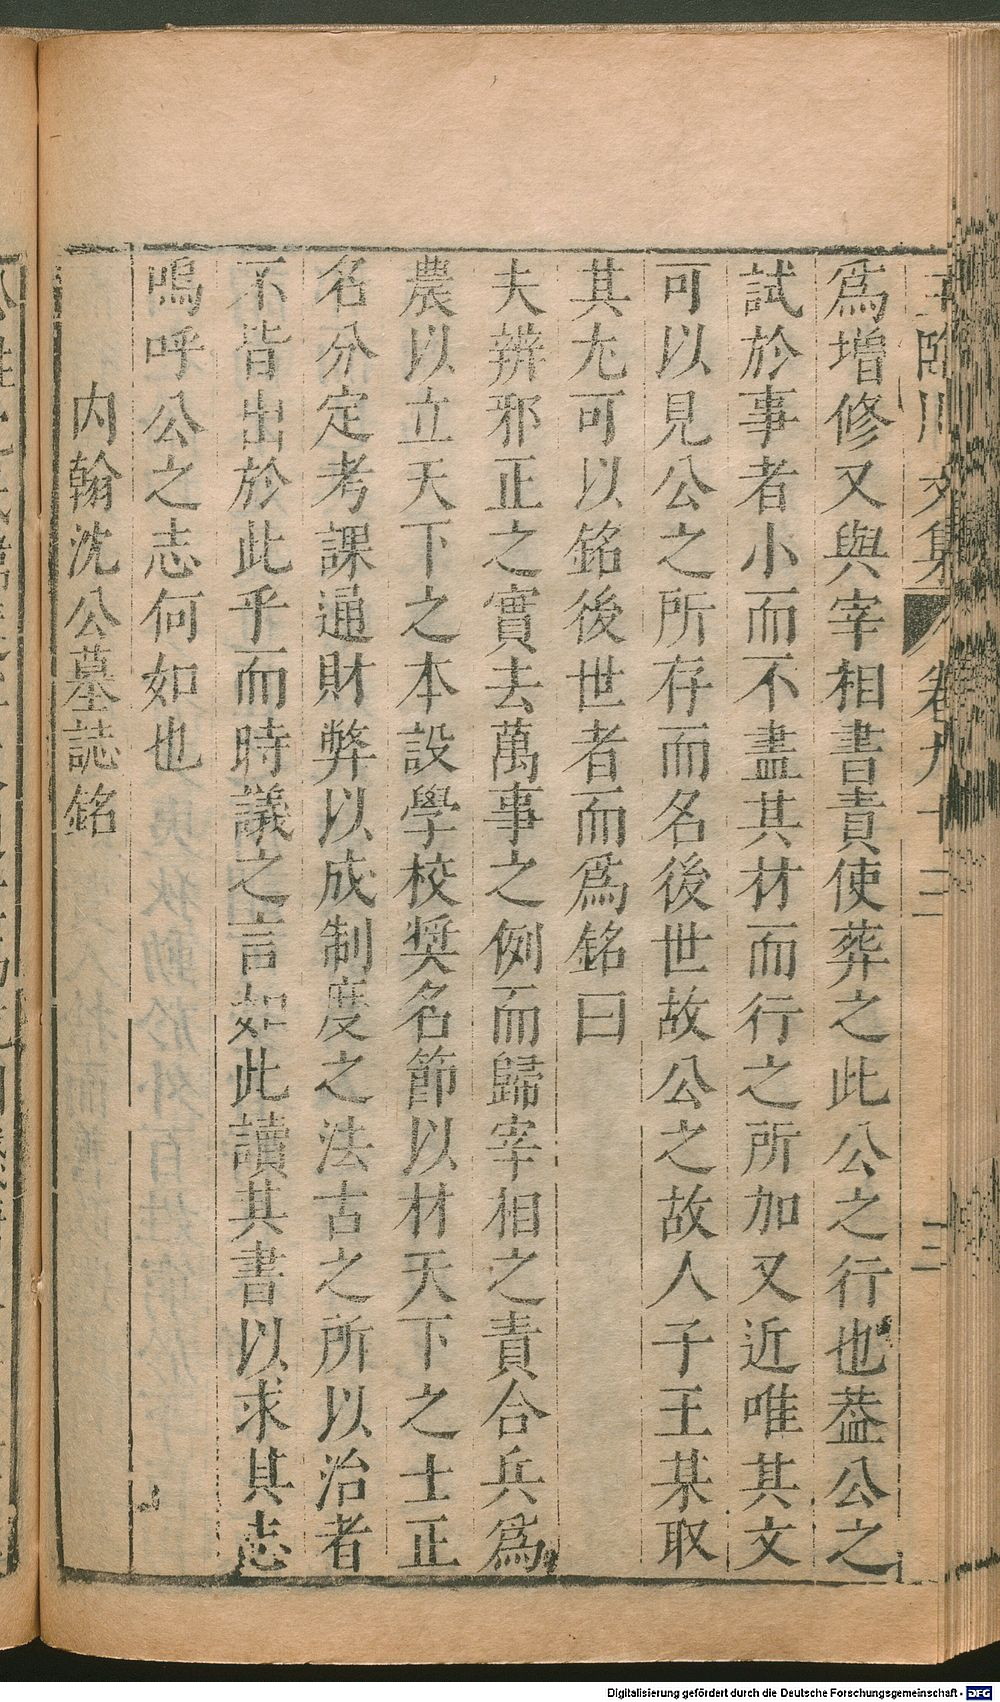 王臨川文集 卷九十三 三
爲增修又與宰相書責使葬之此公之行也葢公之
試於事者小而不盡其材而行之所加又近唯其文
可以見公之所存而名後世故公之故人子王某取
其尤可以銘後世者而爲銘曰
夫辨邪正之實去萬事之例而歸宰相之責合兵爲
農以立天下之本設學校奬名節以材天下之士正
名分定考課通財弊以成制度之法古之所以治者
不皆出於此乎而時議之言如此讀其書以求其志
嗚呼公之志何如也
內翰沈公墓誌銘
Digitalisierung gefördert durch die Deutsche Forschungsgemeinschaft - DFG